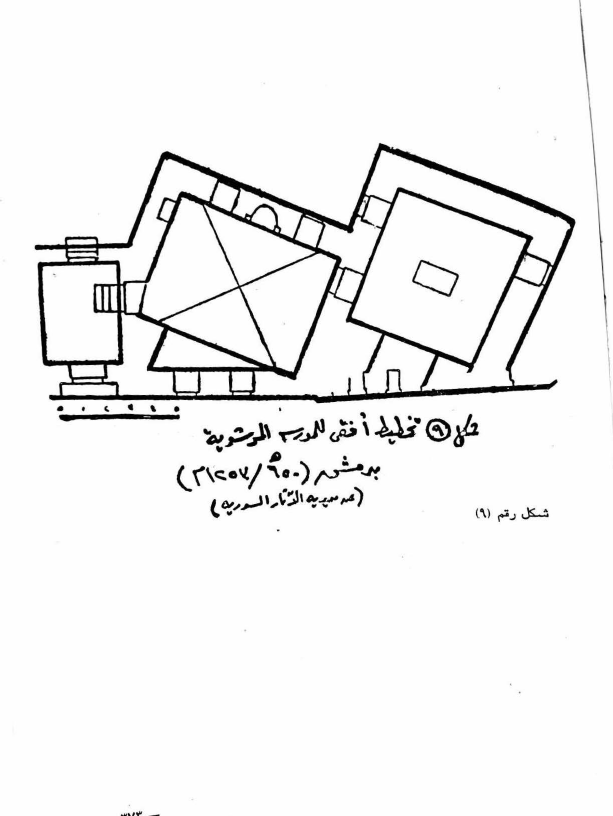 شكل ⑨ تخطيط أفقى للمدرسه المرشدية
بدمشق (٦٥٠هـ/١٢٥٣م)
(عن مديرية الآثار السورية)
شكل رقم (٩)
٣٧٣